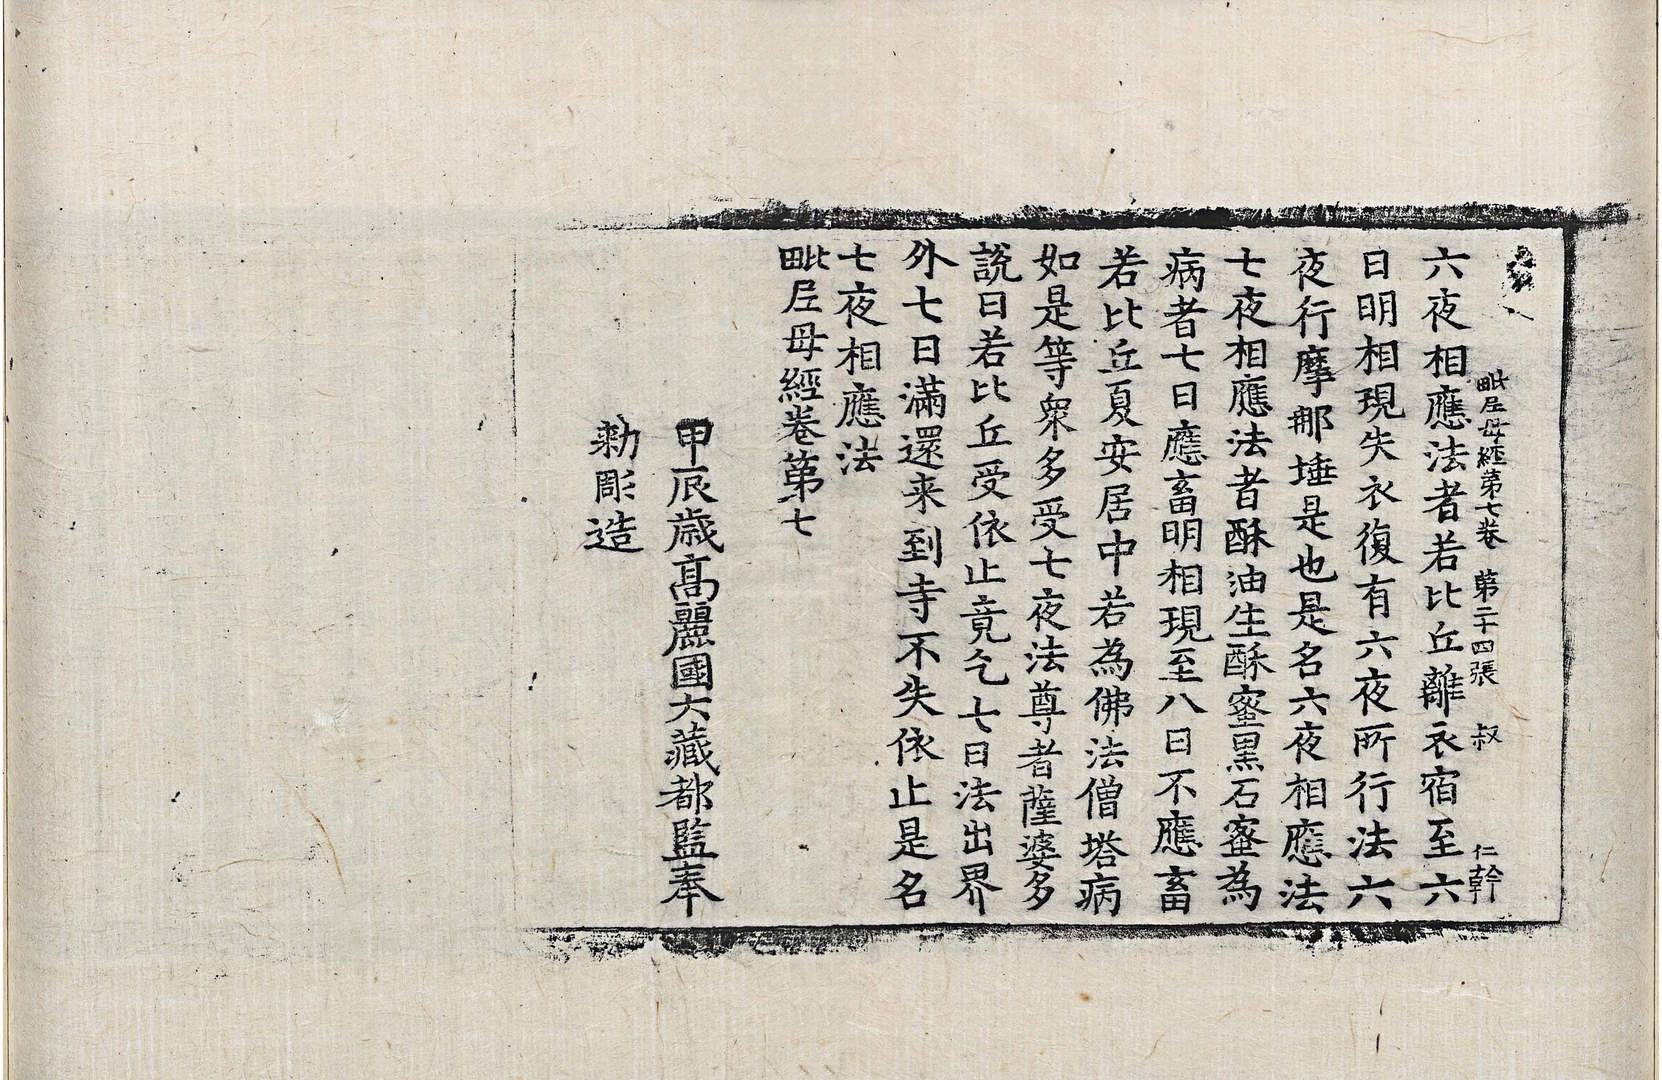 毗尼母經第七卷 第二十四張 叔 仁幹
六夜相應法者若比丘離衣宿至六
日明相現失衣復有六夜所行法六
夜行摩那埵是也是名六夜相應法
七夜相應法者酥油生酥蜜黑石蜜為
病者七日應畜明相現至八日不應畜
若比丘夏安居中若為佛法僧塔病
如是等衆多受七夜法尊者薩婆多
說曰若比丘受依止竟乞七日法出界
外七日滿還来到寺不失依止是名
七夜相應法
毗尼母經卷第七
甲辰歲高麗國大藏都監奉
勅彫造